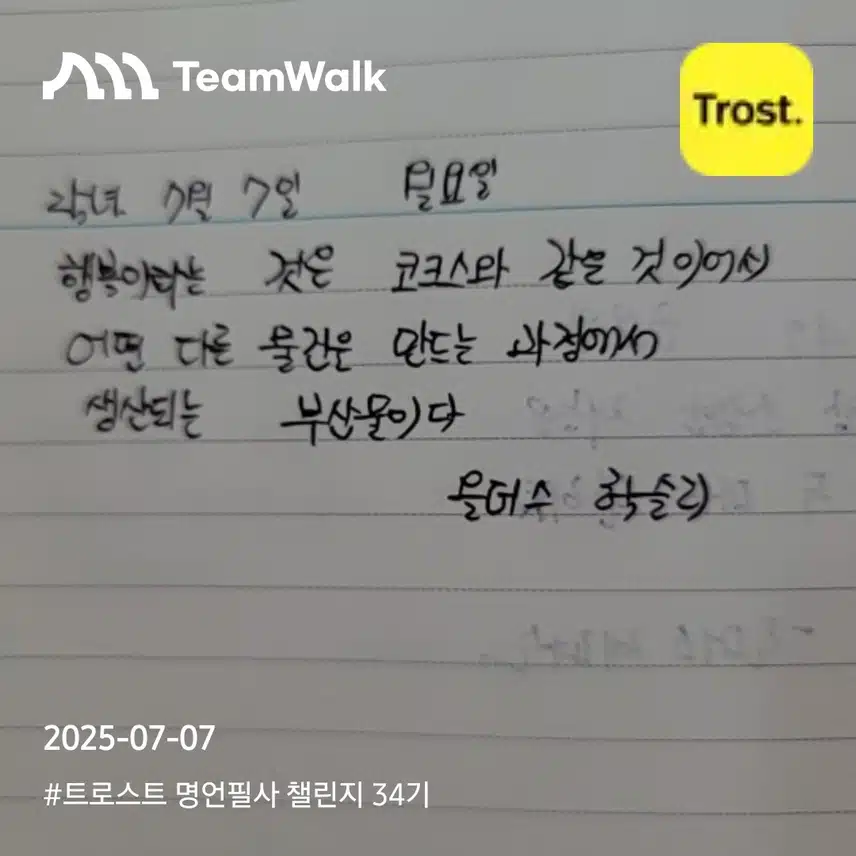 TeamWalk
Trost.
7월 7일 월요일
행복이라는 것은 코크스와 같은 것이어서
어떤 다른 물건은 만드는 과정에서
생산되는 부산물이다
올더스 학슬리
2025-07-07
#트로스트 명언필사 챌린지 34기